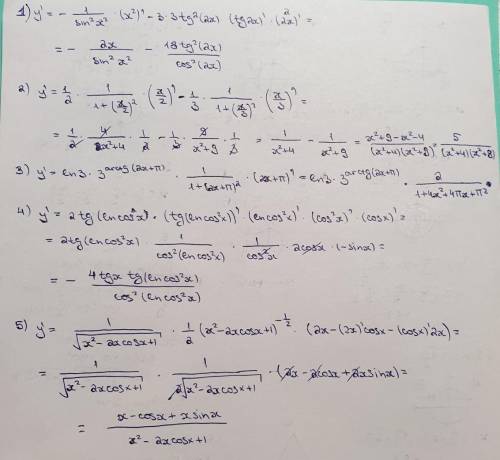 1) y' = - 1/sin²x² · (x²)' - 3·3tg²(2x) (tg2x)' · (2x)' 2 =
= - 2x/sin²x² - 18tg²(2x)/cos²(2x)
2) y' = 1/2 · 1/(1+(x/2)²) · (x/2)' - 1/3 · 1/(1+(x/3)²) · (x/3)' =
= 1/2 · 4/(x²+4) · 1/2 - 1/3 · 9/(x²+9) · 1/3 = 1/(x²+4) - 1/(x²+9) = (x²+9-x²-4)/((x²+4)(x²+9)) = 5/((x²+4)(x²+9))
3) y' = ln3 · 3^arctg(2x+π) · 1/(1+(2x+π)²) · (2x+π)' = ln3 · 3^arctg(2x+π) · 2/(1+4x²+4πx+π²)
4) y' = 2tg(lncos²x) · (tg(lncos²x))' · (lncos²x)' · (cos²x)' · (cosx)' =
= 2tg(lncos²x) · 1/cos²(lncos²x) · 1/cos²x · 2cosx · (-sinx) =
= - 4tgx tg(lncos²x)/cos²(lncos²x)
5) y = 1/√(x²-2xcosx+1) · 1/2 (x²-2xcosx+1)^(-1/2) · (2x-(2x)'cosx-(cosx)'2x) =
= 1/√(x²-2xcosx+1) · 1/(2√(x²-2xcosx+1)) · (2x-2cosx+2xsinx) =
= (x-cosx+xsinx)/(x²-2xcosx+1)